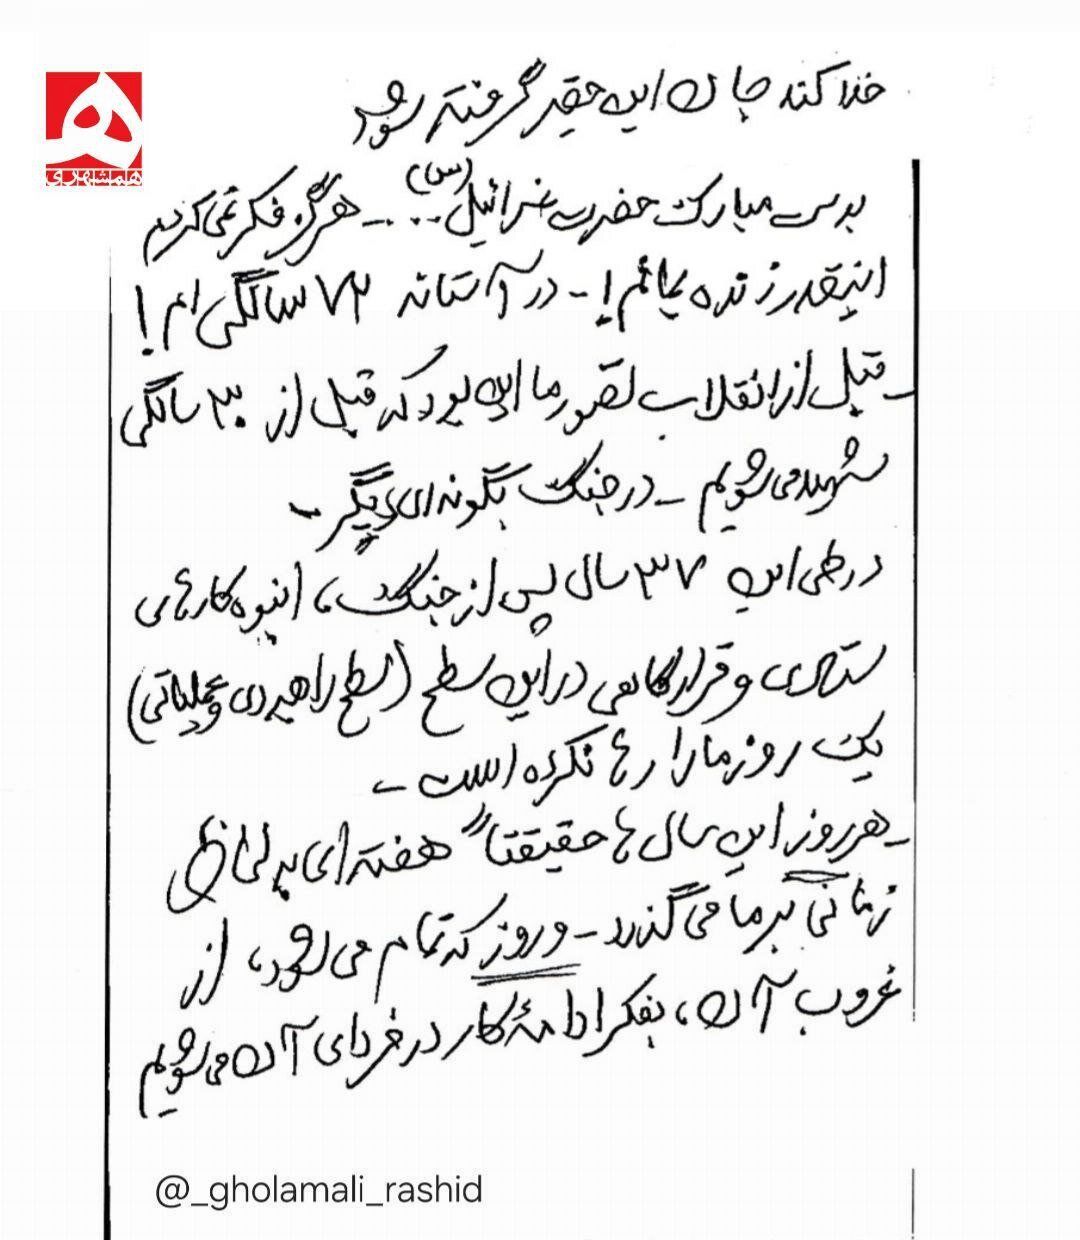 همشهری
خدا کند جان این حقیر گرفته شود
بدست مبارک حضرت عزرائیل (س)... ـ هرگز فکر نمی کردیم
اینقدر زنده بمانم! ـ در آستانه ۷۲ سالگی ام!
ـ قبل از انقلاب تصور ما این بود که قبل از ۳۰ سالگی
شهید می شویم ـ در جنگ بگونه ای دیگر ـ
در طی این ۳۷ سال پس از جنگ، انبوه کارهای
ستادی و قرارگاهی در این سطح (سطح راهبردی و عملیاتی)
یک روز ما را رها نکرده است ـ
ـ هر روز این سال ها حقیقتاً هفته ای به لحاظ
زمانی بر ما می گذرد ـ و روز که تمام می شود، از
غروب آن، بفکر ادامهٔ کار در فردای آن می شویم
@_gholamali_rashid